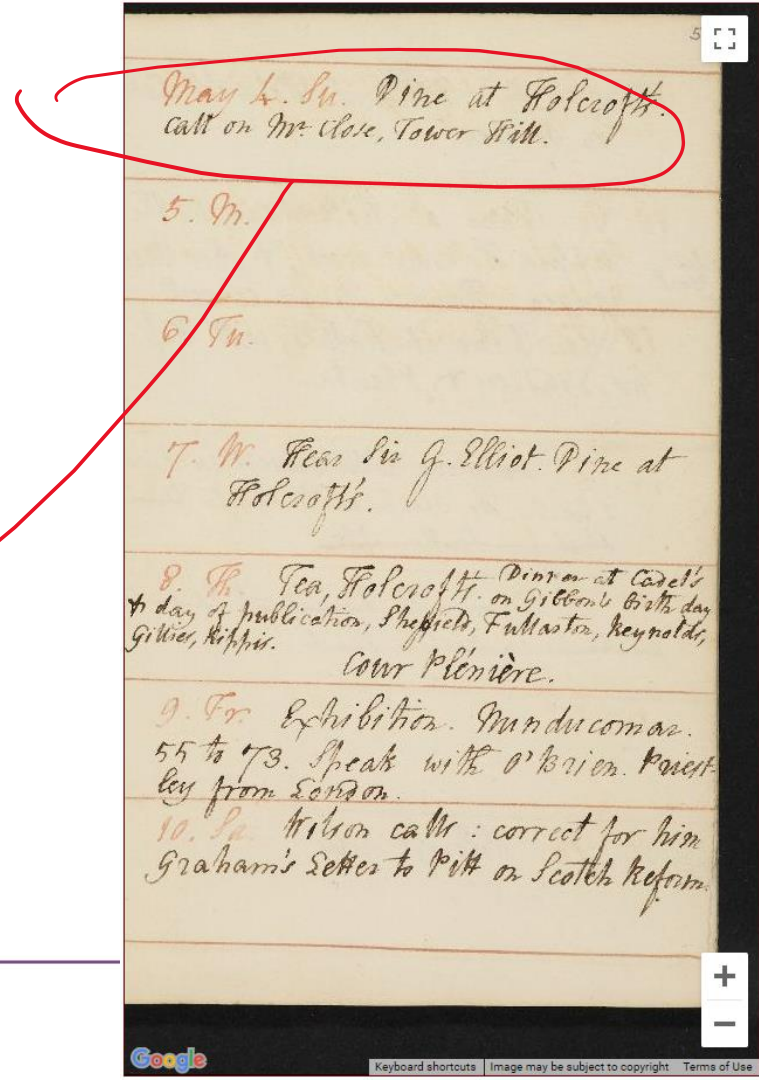 5
May 4. Su. Dine at Holcroft's.
call on Mr Close, Tower Hill.
5. M.
6 Tu.
7. W. Hear Sir G. Elliot. Dine at
Holcroft's.
8. Th. Tea, Holcroft's. Dinner at Cadel's
on Gibbon's birth day
& day of publication, Sheffield, Fullarton, Reynolds,
Gillies, Kippis.
Cour Plénière.
9. Fr. Exhibition. Nunducomar.
55 to 73. Speak with O'Brien. Priest-
ley from London.
10. Sa. Wilson calls: correct for him
Graham's Letter to Pitt on Scotch Reform.
Google
Keyboard shortcuts Image may be subject to copyright Terms of Use